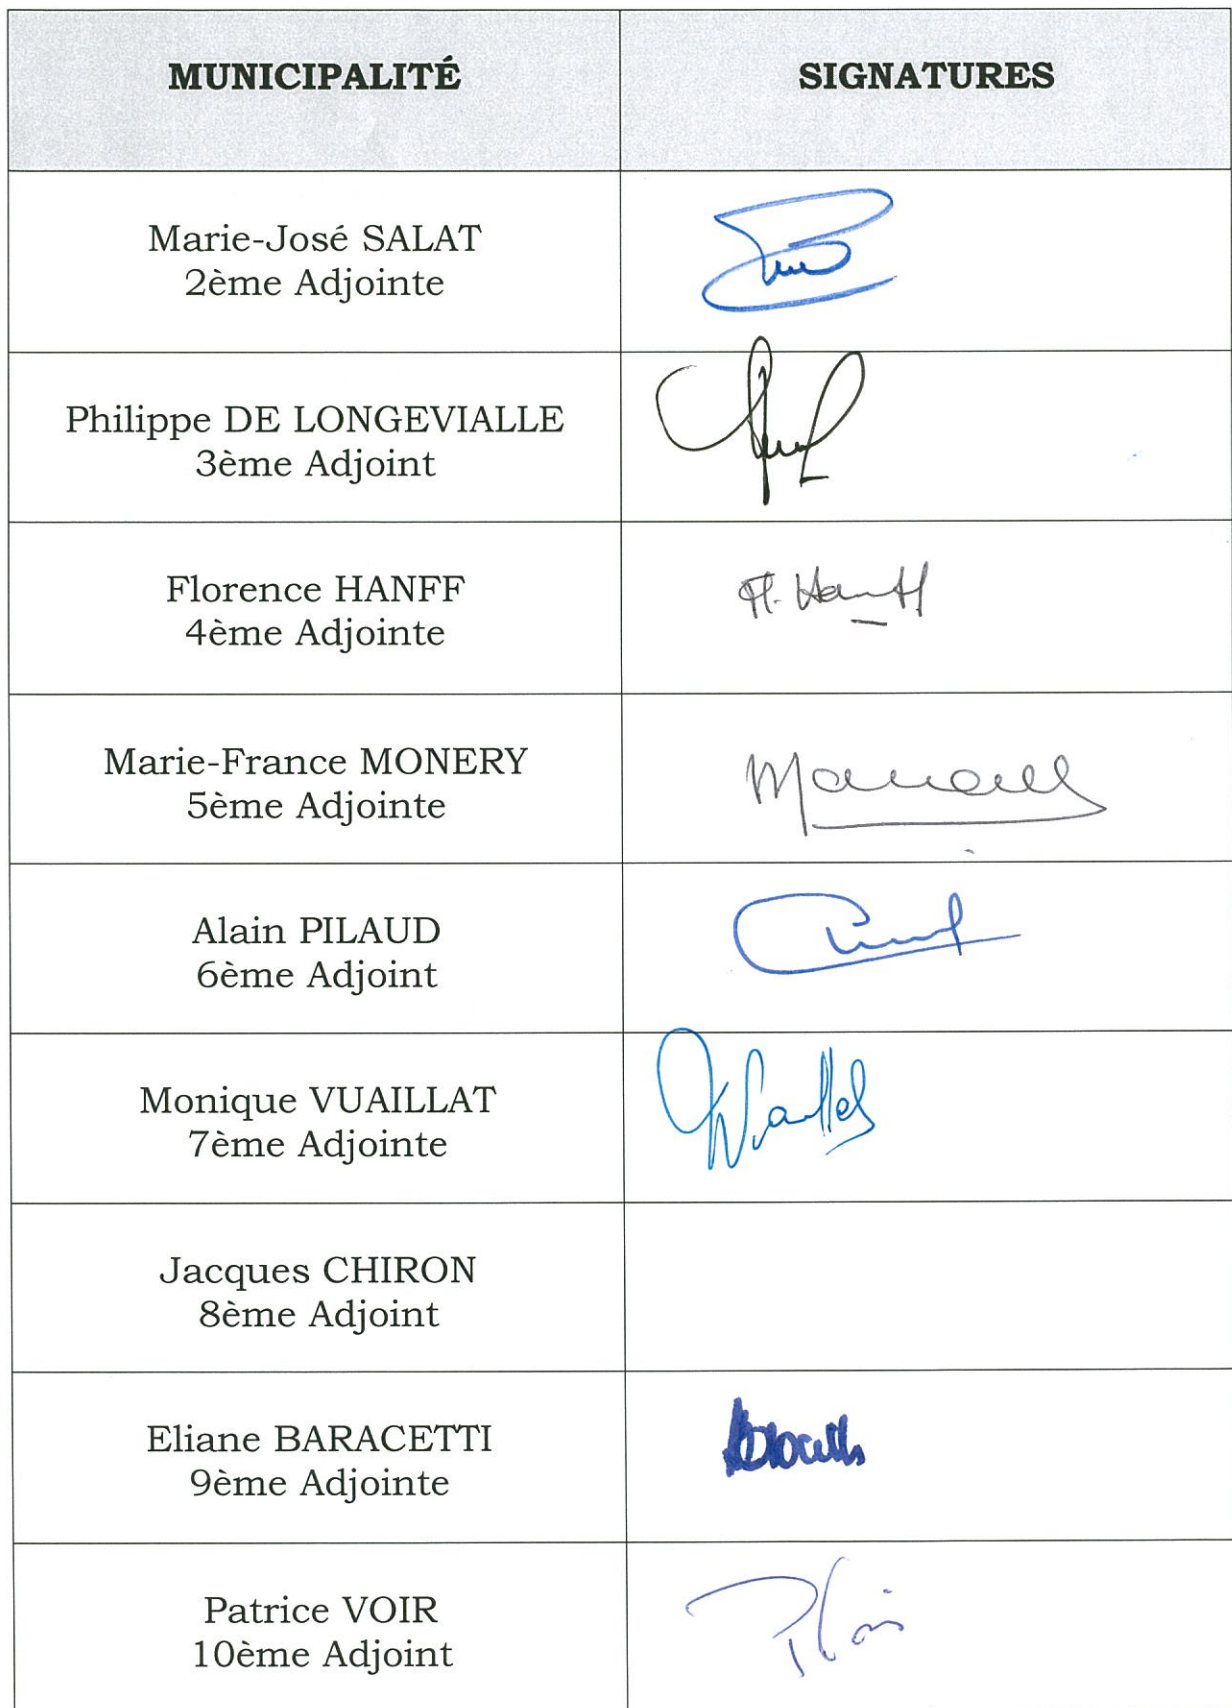 MUNICIPALITÉ
SIGNATURES
Marie-José SALAT
2ème Adjointe
Philippe DE LONGEVIALLE
3ème Adjoint
Florence HANFF
4ème Adjointe
Fl. Hanff
Marie-France MONERY
5ème Adjointe
Alain PILAUD
6ème Adjoint
Monique VUAILLAT
7ème Adjointe
Jacques CHIRON
8ème Adjoint
Eliane BARACETTI
9ème Adjointe
Patrice VOIR
10ème Adjoint